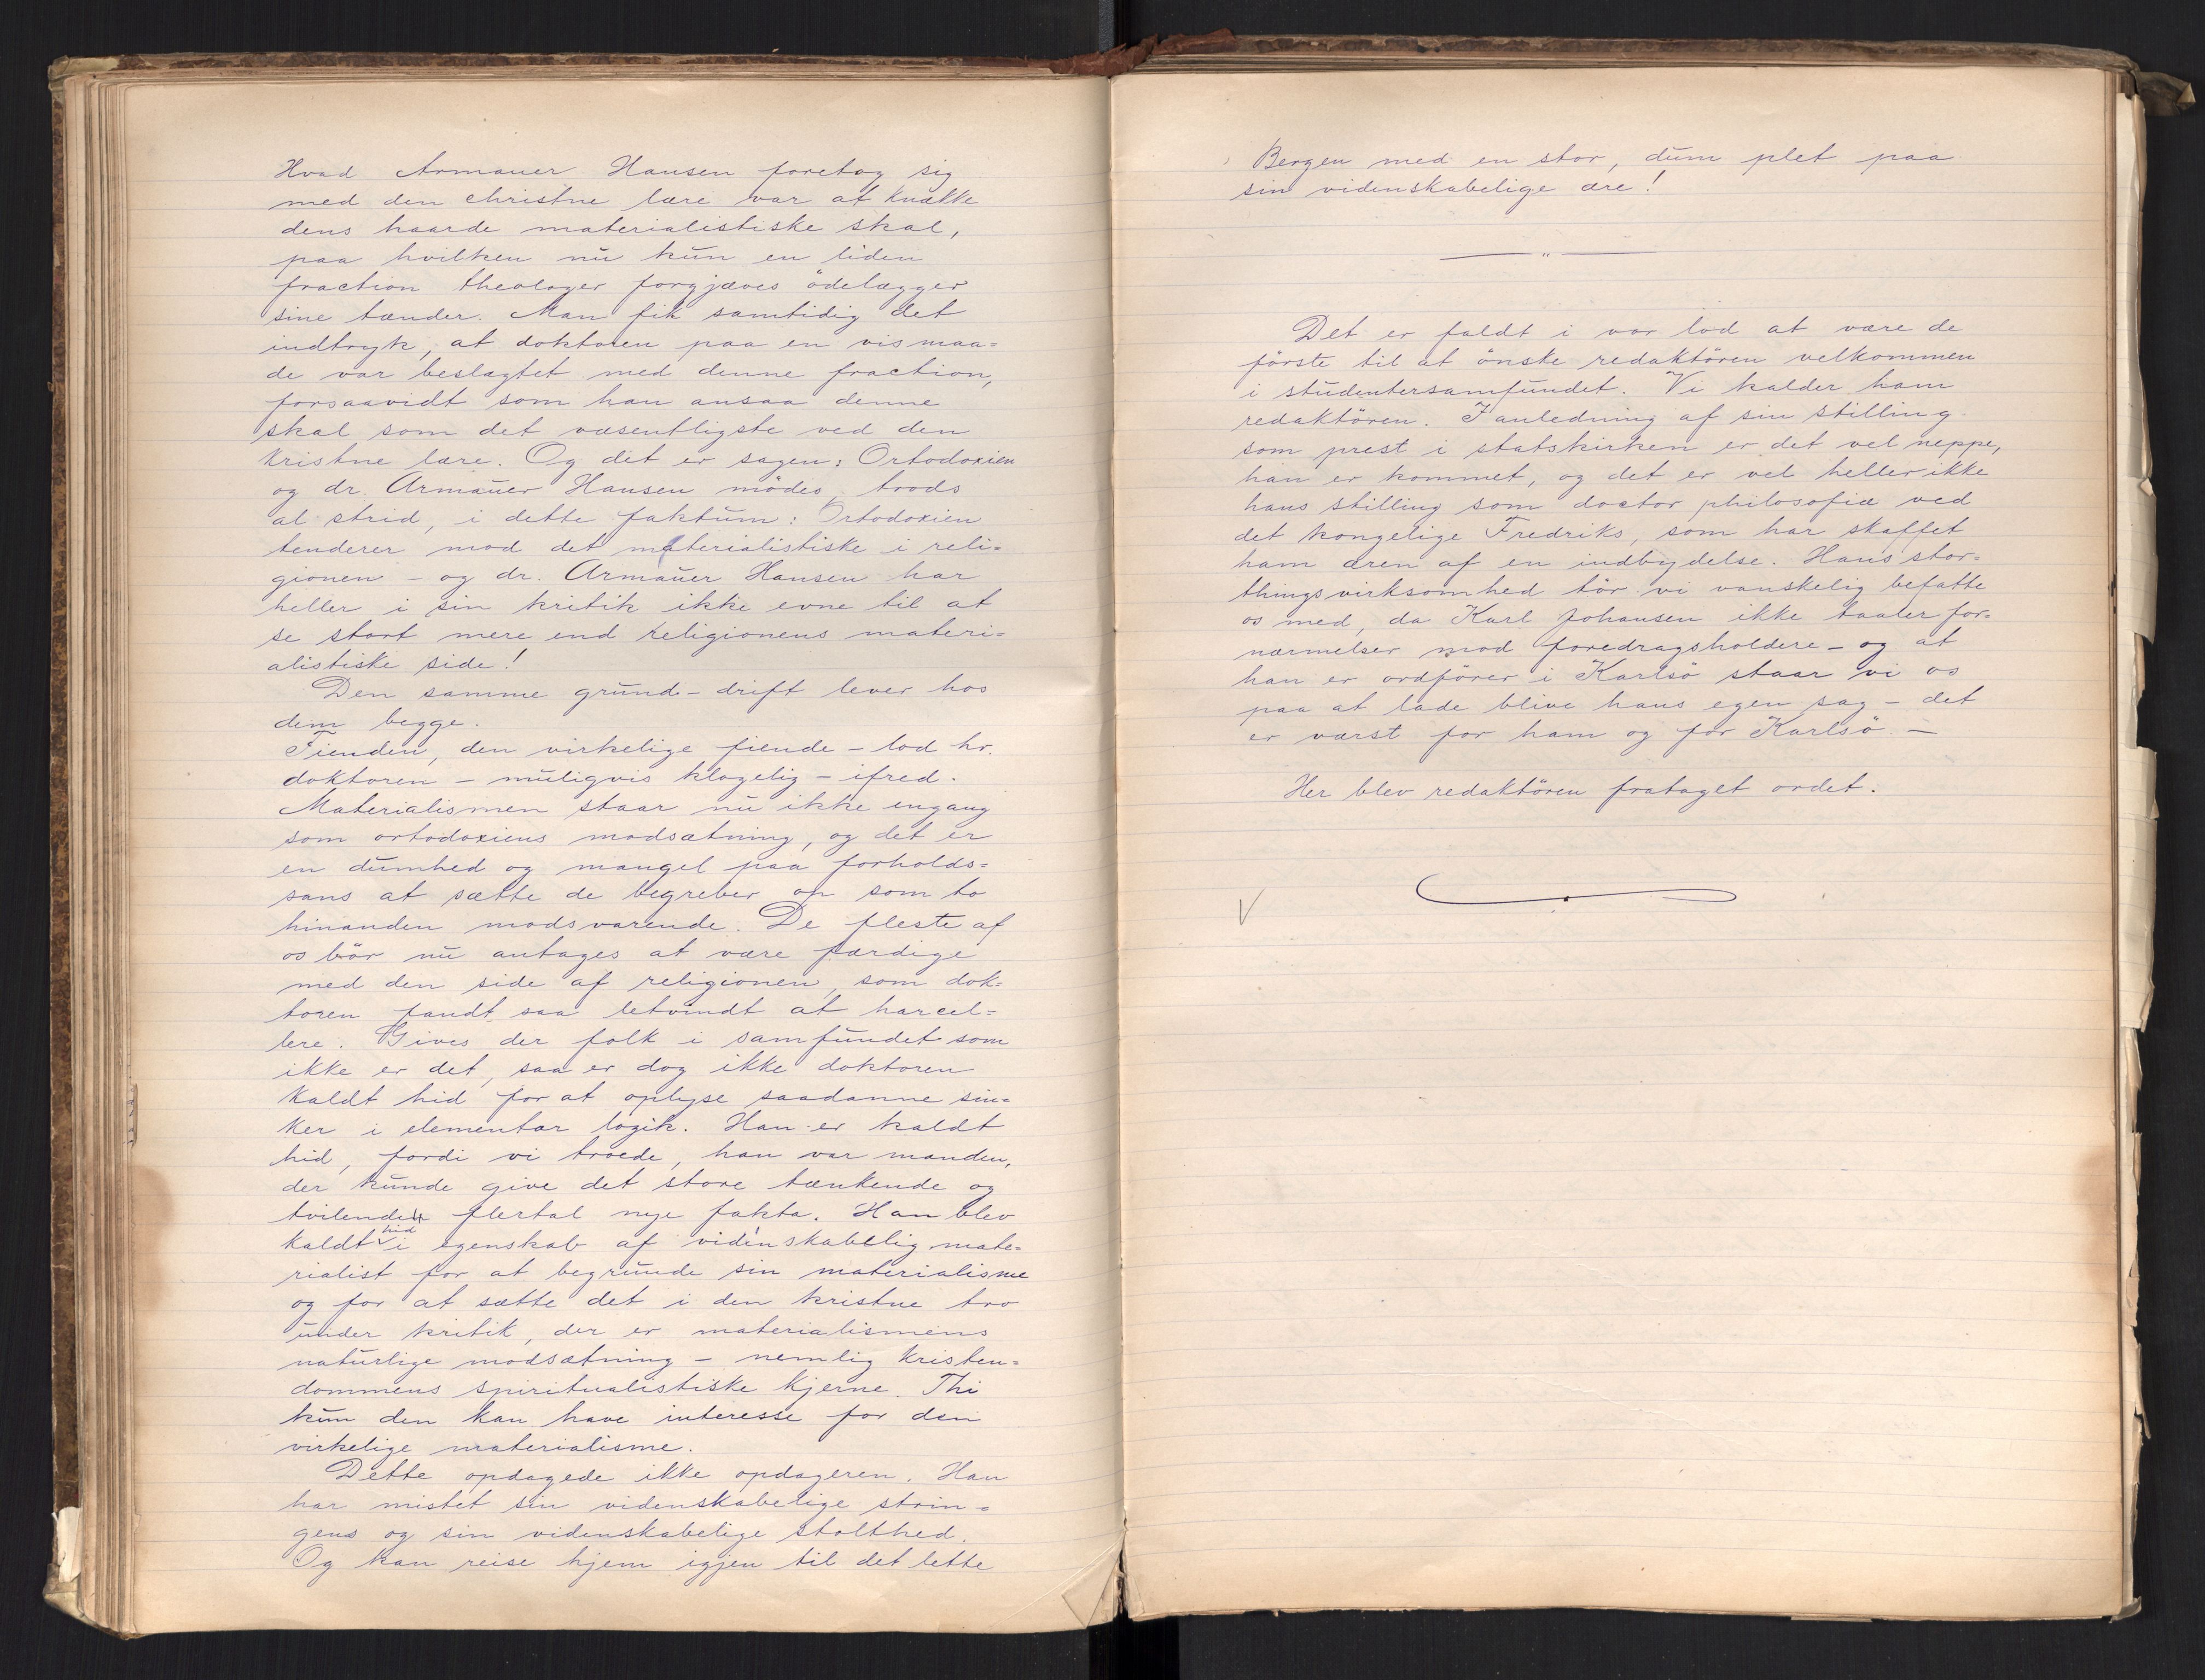 Hvad Armauer Hansen foretog sig
med den christne lære var at knække
dens haarde materialistiske skal,
paa hvilken nu kun en liden
fraction theologer forgjæves ödelægger
sine tænder. Man fik samtidig det
indtryk, at doktoren paa en vis maa=
de var beslagtet med denne fraction,
forsaavidt som han ansaa denne
skal som det væsentligste ved den
kristne lære. Og det er sagen: Ortodoxien
og dr. Armauer Hansen mödes, trods
al strid, i dette faktum: Ortodoxien
tenderer mod det materialistiske i reli=
gionen – og dr. Armauer Hansen har
heller i sin kritik ikke evne til at
se stort mere end religionens materi=
alistiske side!
Den samme grund-drift lever hos
dem begge.
Fienden, den virkelige fiende – lod hr.
doktoren – muligvis klogelig – ifred.
Materialismen staar nu ikke engang
som ortodoxiens modsætning, og det er
en dumhed og mangel paa forholds=
sans at sætte de begreber op som to
hinanden modsvarende. De fleste af
os bör nu antages at være færdige
med den side af religionen, som dok=
toren fandt saa letvindt at harcel=
lere. Gives der folk i samfundet som
ikke er det, saa er dog ikke doktoren
kaldt hid for at oplyse saadanne sin=
ker i elementær logik. Han er kaldt
hid, fordi vi troede, han var manden,
der kunde give det store tænkende og
tvilende flertal nye fakta. Han blev
kaldt hid i egenskab af videnskabelig mate=
rialist for at begrunde sin materialisme
og for at sætte det i den kristne tro
under kritik, der er materialismens
naturlige modsætning – nemlig kristen=
dommens spiritualistiske kjerne. Thi
kun den kan have interesse for den
virkelige materialisme.
Dette opdagede ikke opdageren. Han
har mistet sin videnskabelige strin=
gens og sin videnskabelige stolthed.
Og kan reise hjem igjen til det lette
Bergen med en stor, dum plet paa
sin videnskabelige ære!
Det er faldt i vor lod at være de
förste til at önske redaktören velkommen
i studentersamfundet. Vi kalder ham
redaktören. I anledning af sin stilling
som prest i statskirken er det vel neppe,
han er kommet, og det er vel heller ikke
hans stilling som doctor philosofiæ ved
det kongelige Fredriks, som har skaffet
ham æren af en indbydelse. Hans stor=
thingsvirksomhed tör vi vanskelig befatte
os med, da Karl Johansen ikke taaler for=
nærmelser mod foredragsholdere – og at
han er ordförer i Karlsö staar vi os
paa at lade blive hans egen sag – det
er værst for ham og for Karlsö. –
Her blev redaktören frataget ordet.